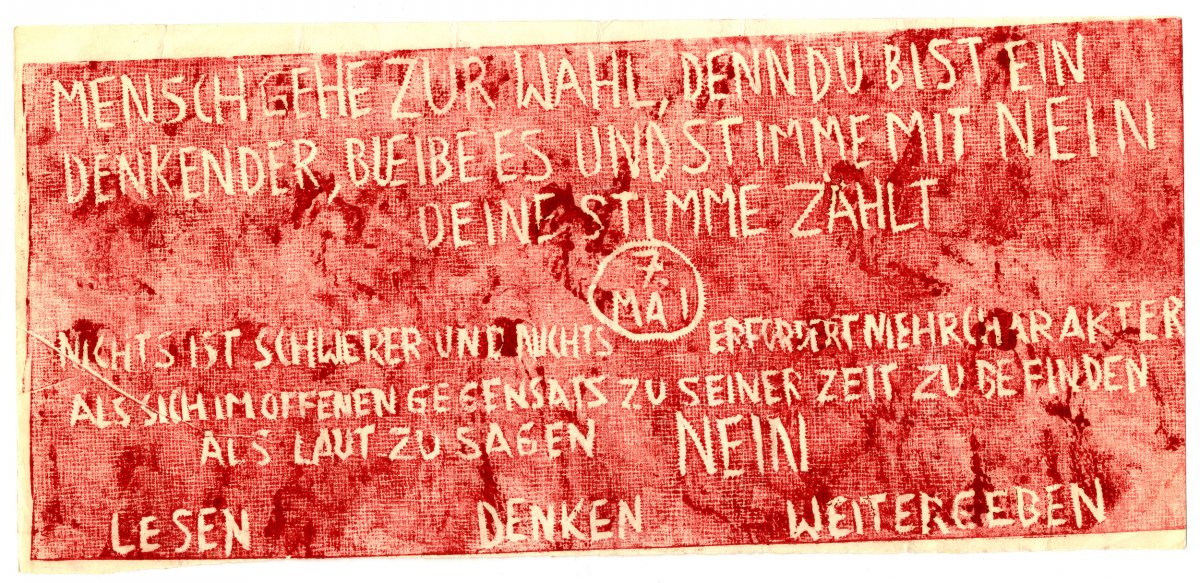 MENSCH GEHE ZUR WAHL, DENN DU BIST EIN
DENKENDER, BLEIBE ES UND STIMME MIT NEIN
DEINE STIMME ZÄHLT
7.
MAI
NICHTS IST SCHWERER UND NICHTS ERFORDERT MEHR CHARAKTER
ALS SICH IM OFFENEN GEGENSATS ZU SEINER ZEIT ZU BEFINDEN
ALS LAUT ZU SAGEN NEIN
LESEN DENKEN WEITERGEBEN